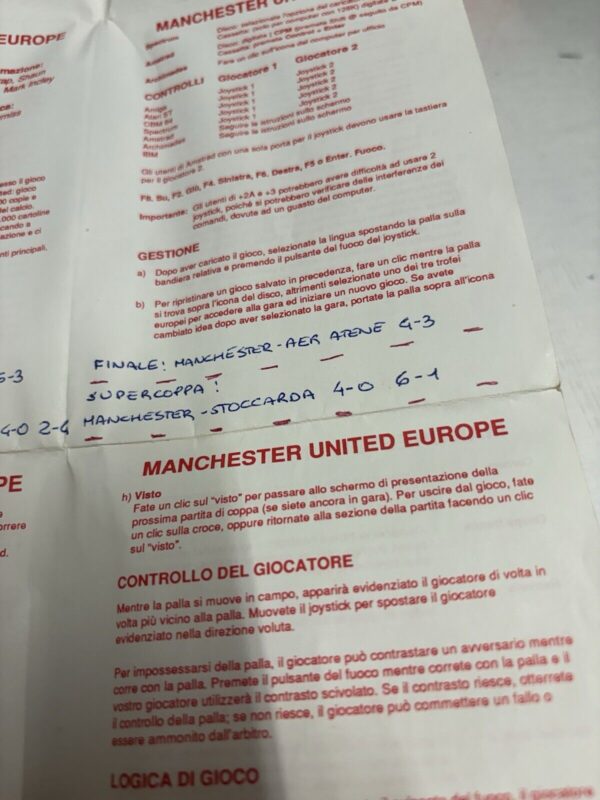 EUROPE
MANCHESTER UN
Mark Incley
Spectrum
Disco: selezionate l'opzione del
Amstrad
Archimedes
Fare un clic sull'icona del computer per
CONTROLLI Giocatore 1 Giocatore 2
Amiga Joystick 1 Joystick 2
Atari ST Joystick 1 Joystick 2
CBM 64 Joystick 1 Joystick 2
Spectrum Joystick 1 Joystick 2
Amstrad Joystick 1 Joystick 2
Archimedes Seguire le istruzioni sullo schermo
IBM Seguire le istruzioni sullo schermo
Gli utenti di Amstrad con una sola porta per il joystick devono usare la tastiera
per il giocatore 2.
F8. Su, F2. Giù, F4. Sinistra, F6. Destra, F5 o Enter. Fuoco.
Importante: Gli utenti di +2A e +3 potrebbero avere difficoltà ad usare 2
joystick, poiché si potrebbero verificare delle interferenze dei
comandi, dovute ad un guasto del computer.
esso il gioco
ted: gioco
00 copie e
del calcio.
.000 cartoline
cando a
azione e ci
nti principali.
GESTIONE
a) Dopo aver caricato il gioco, selezionate la lingua spostando la palla sulla
bandiera relativa e premendo il pulsante del fuoco del joystick.
b) Per ripristinare un gioco salvato in precedenza, fare un clic mentre la palla
si trova sopra l'icona del disco, altrimenti selezionate uno dei tre trofei
europei per accedere alla gara ed iniziare un nuovo gioco. Se avete
cambiato idea dopo aver selezionato la gara, portate la palla sopra all'icona
FINALE: MANCHESTER-AEK ATENE 4-3
5-3
SUPERCOPPA!
4-0 2-4 MANCHESTER-STOCCARDA 4-0 6-1
PE
MANCHESTER UNITED EUROPE
h) Visto
Fate un clic sul "visto" per passare allo schermo di presentazione della
prossima partita di coppa (se siete ancora in gara). Per uscire dal gioco, fate
un clic sulla croce, oppure ritornate alla sezione della partita facendo un clic
sul "visto".
orrere
d.
CONTROLLO DEL GIOCATORE
Mentre la palla si muove in campo, apparirà evidenziato il giocatore di volta in
volta più vicino alla palla. Muovete il joystick per spostare il giocatore
evidenziato nella direzione voluta.
Per impossessarsi della palla, il giocatore può contrastare un avversario mentre
corre con la palla. Premete il pulsante del fuoco mentre correte con la palla e il
vostro giocatore utilizzerà il contrasto scivolato. Se il contrasto riesce, otterrete
il controllo della palla; se non riesce, il giocatore può commettere un fallo o
essere ammonito dall'arbitro.
LOGICA DI GIOCO